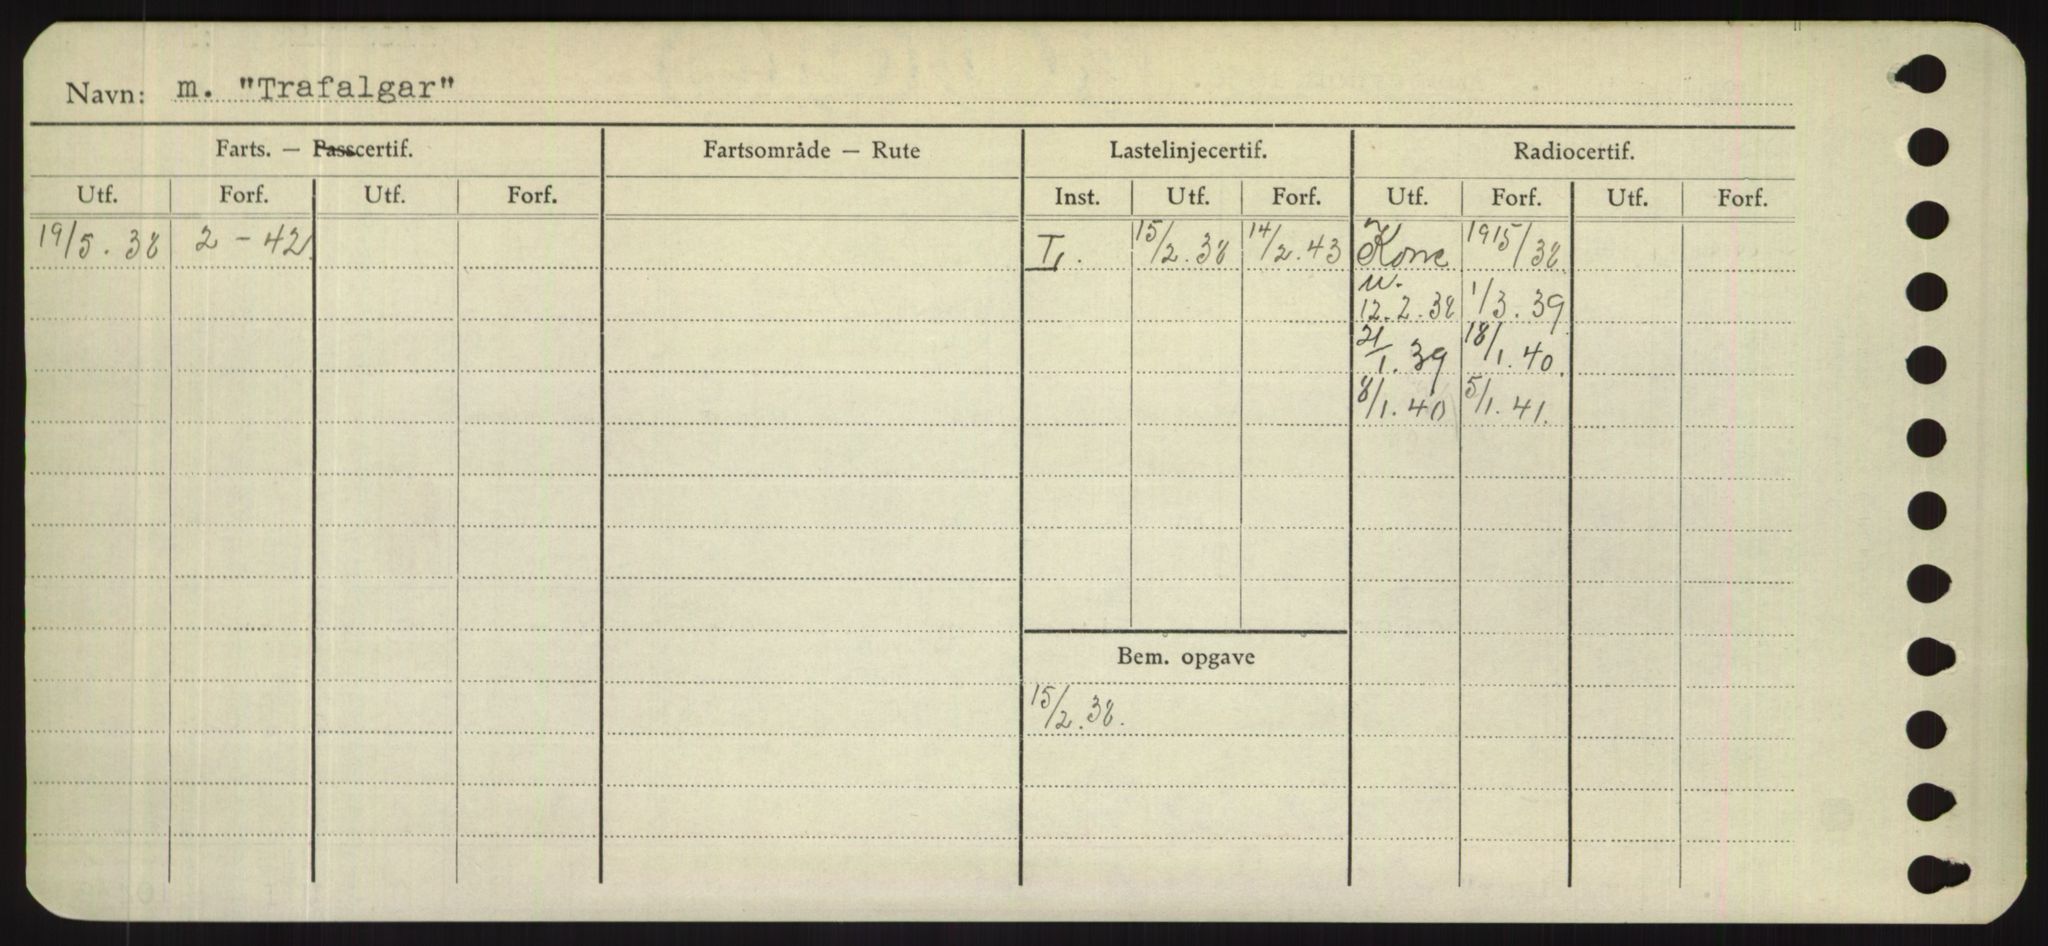 Navn: m. "Trafalgar"
Farts. — Passcertif. Fartsområde — Rute Lastelinjecertif. Radiocertif.
Utf. Forf. Utf. Forf. Inst. Utf. Forf. Utf. Forf. Utf. Forf.
19/5. 38 2 - 42 I. 15/2. 38 14/2. 43 1915/38
12.2.38 1/3. 39
21/1. 39 18/1. 40.
8/1. 40 5/1. 41.
Bem. opgave
15/2. 38.